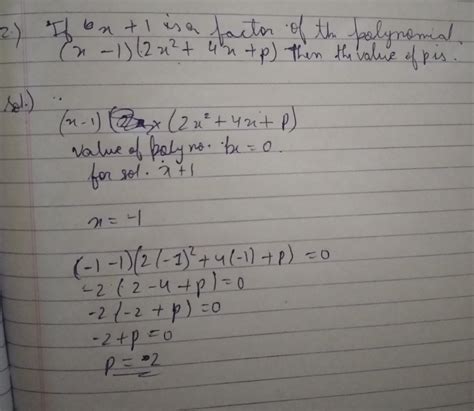 2.) If x + 1 is a factor of the polynomial
(x - 1)(2x² + 4x + p) then the value of p is.
Sol.) ∵
(x-1) × (2x² + 4x + p)
value of polyno. = 0.
for sol. x+1
x = -1
(-1 -1)(2(-1)² + 4(-1) + p) = 0
-2 (2 - 4 + p) = 0
-2 (-2 + p) = 0
-2 + p = 0
p = 2